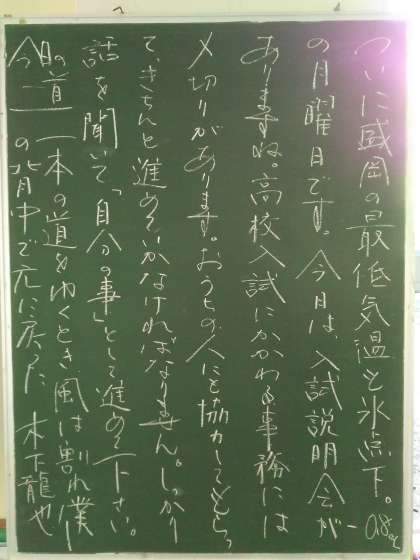 ついに盛岡の最低気温も氷点下。-0.8℃
の月曜日です。今月は、入試説明会が
ありますね。高校入試にかかわる事務には
〆切りがあります。おうちの人にも協力してもらっ
て、きちんと進めていかなければなりません。しっかり
話を聞いて「自分の事」として進めて下さい。
今日の一首 一本の道をゆくとき風は割れ僕
の背中で元に戻った 木下龍也